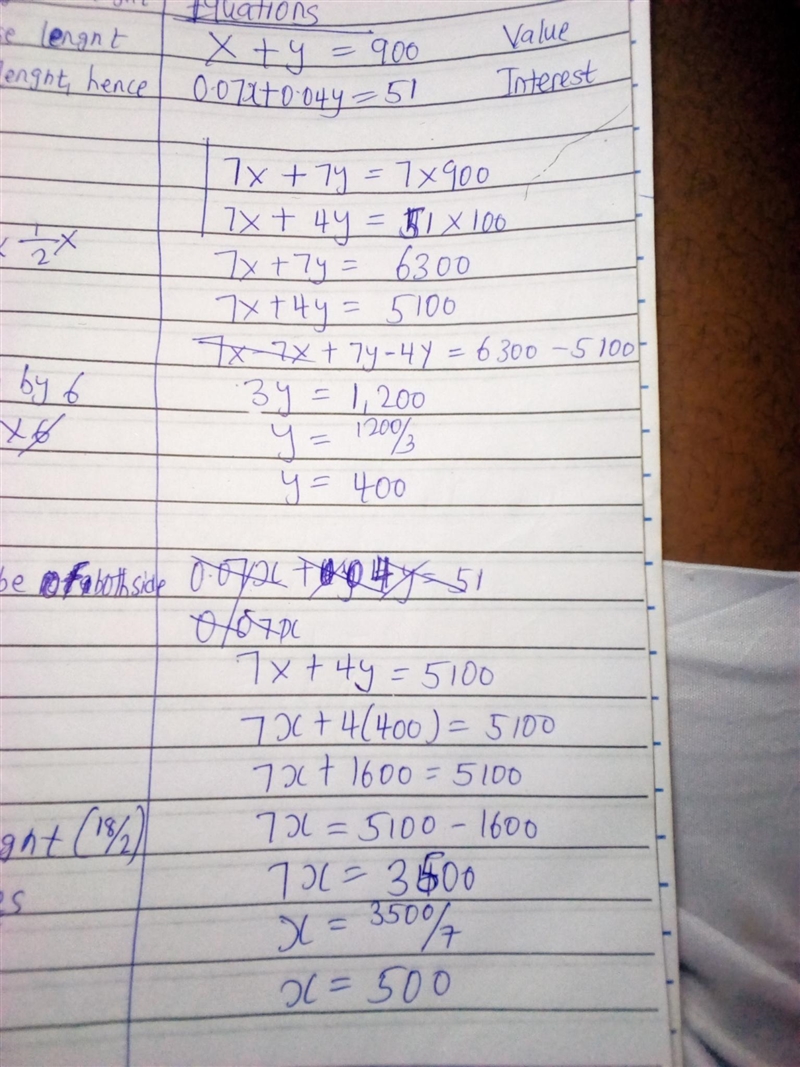 Equations
se lenght
x + y = 900 Value
lenght, hence
0.07x+0.04y = 51 Interest
7x + 7y = 7x900
7x + 4y = 51 x 100
x 1/2 x
7x+7y = 6300
7x+4y = 5100
7x-7x + 7y-4y = 6300 - 5100
by 6
3y = 1,200
x 6
y = 1200/3
y = 400
be of both side
0.07x + 0.04y = 51
0.07x
7x + 4y = 5100
7x + 4(400) = 5100
7x + 1600 = 5100
ght (18/2)
7x = 5100 - 1600
7x = 3500
es
x = 3500/7
x = 500